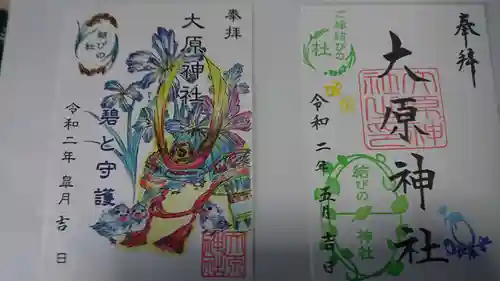 奉拝
大原神社
結びの社
碧と守護
令和二年 皐月 吉日
奉拝
大原神社
ご縁結びの社
令和二年五月吉日
結びの
神社